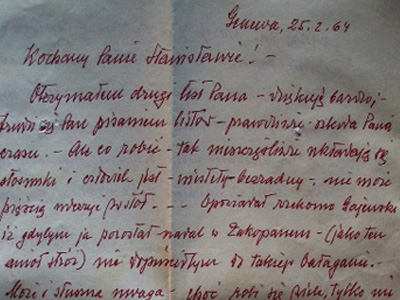 Geneva, 25.2.64
Kochany Panie Stanisławie! -
Otrzymałem drugi list Pana - dziękuję bardzo; -
trudzi się Pan pisaniem listów - prawdziwie szkoda Pana
czasu. - Ale co robić - tak nieszczęśliwie układają się
stosunki i człowiek jest - niestety - bezradny -, nie może
pięścią uderzyć w stół. - Opowiadał rzekomo Gajewski
iż gdybym ja pozostał nadal w Zakopanem - (jako ten
anioł stróż) nie dopuściłbym do takiego bałaganu. -
Może i słuszna uwaga - choć robi się tyle, tylko mi